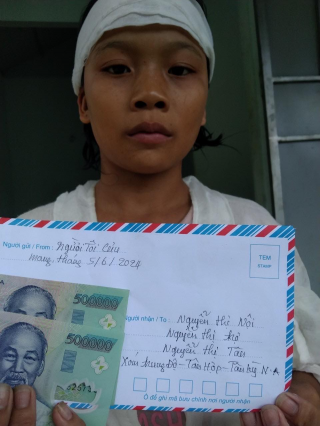 Người gửi / From : Người
tháng 5/6/2024
TEM
STAMP
500000
500000
Người nhận / To : Nguyễn thị Nội
Nguyễn thị
Nguyễn thị Tân
Xóm trung Độ - Tân Hợp - Tân kỳ N-A
Ô để ghi mã bưu chính nơi người nhận